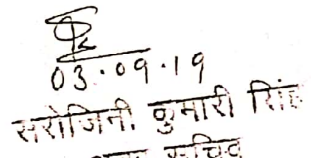 03.09.19
सरोजिनी कुमारी सिंह
सचिव